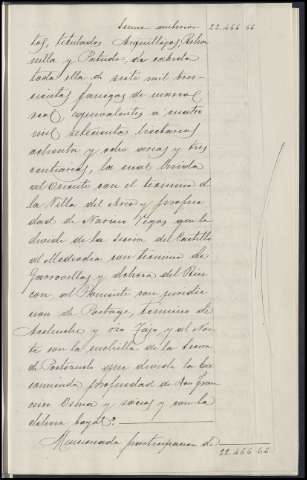 Suma anterior 22.466 66
tos, titulados Arquillejos, Retra
milla y Patudo, de cabida
toda ella de siete mil tres
cientas fanegas de marco
real, equivalentes a cuatro
mil setecientas hectareas
ochenta y ocho areas y tres
centiareas, la cual linda
al Oriente con el termino de
la Villa del Arco y propie
dad de Narciso Vegas que la
divide de la Sierra del Castillo
al Mediodia con termino de
Garrovillas y dehesa del Rin
con, al Poniente con jurisdic
cion de Portage, termino de
Acehuche y rio Tajo y al Nor
te con la cuchilla de la Sierra
de Portezuelo que divide la En
comienda propiedad de Don Fran
cisco Osma y socios y con la
dehesa boyal?
Mancionada participacion de
22.466 66